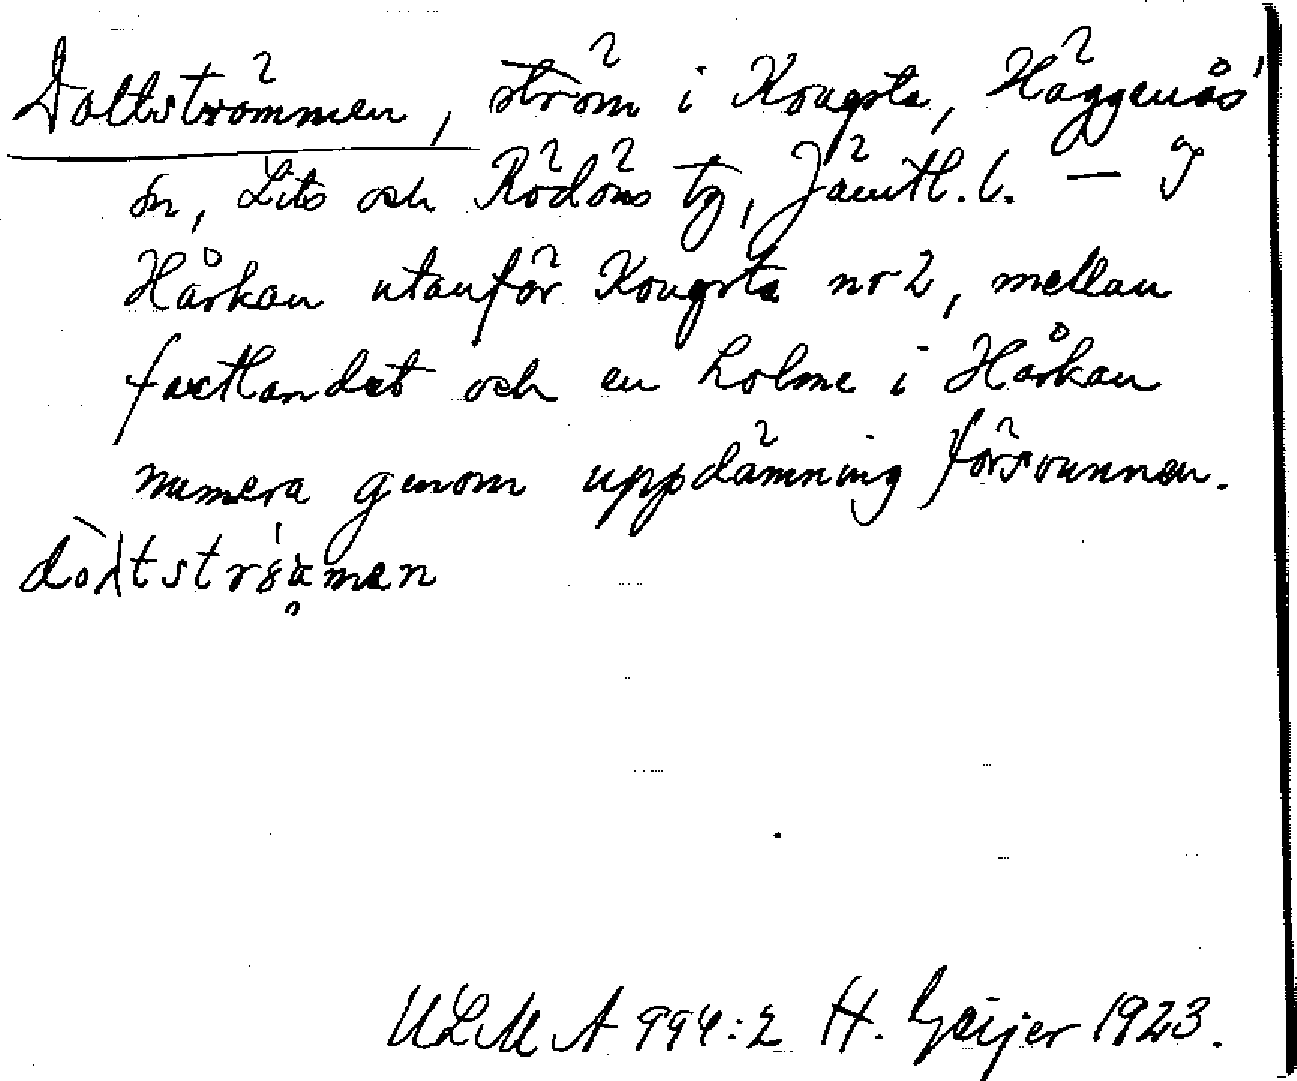 Doltströmmen, ström i Kougsta, Häggenås'
sn, Lits och Rödöns tg, Jämtl.l. — I
Hårkan utanför Kougsta nr 2, mellan
fastlandet och en holme i Hårkan
numera genom uppdämning försvunnen.
ULMA 994:2 H. Geijer 1923.